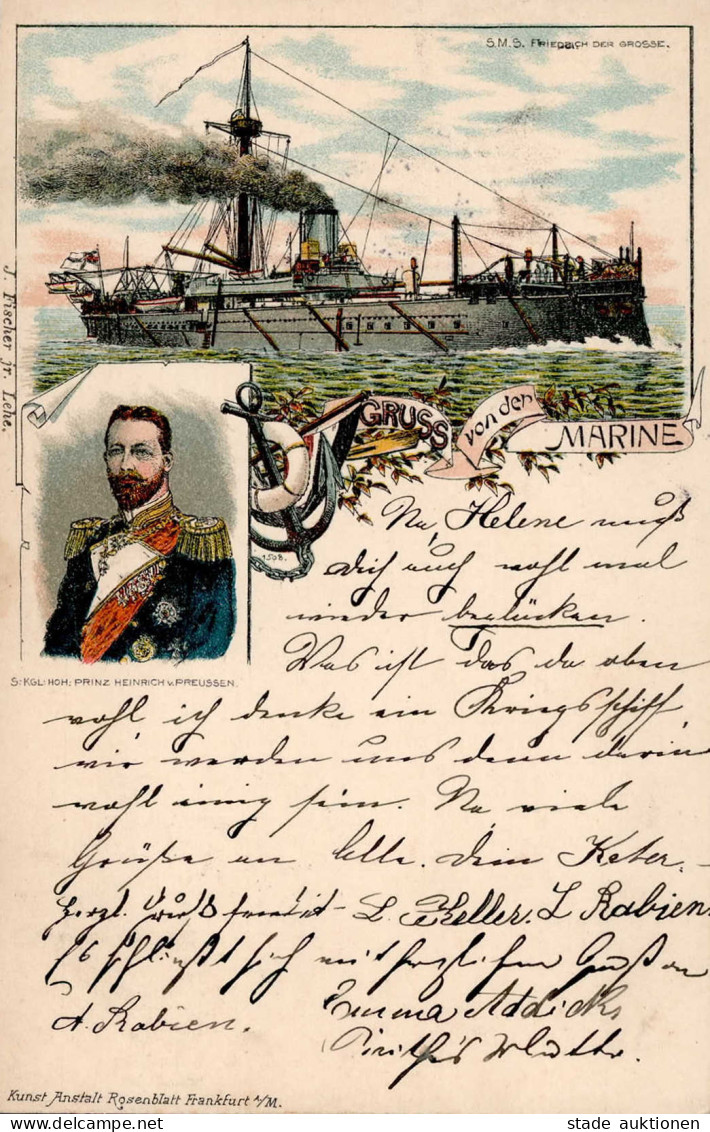 S.M.S. FRIEDRICH DER GROSSE.
J. Fischer jr. Lehe.
GRUSS von der MARINE
1508.
S: KGL: HOH: PRINZ HEINRICH v. PREUSSEN.
Na, Helene muß
dich auch wohl mal
wieder beglücken.
Was ist das da oben
wohl ich denke ein Kriegsschiff
wir werden uns denn darin
wohl einig sein. Na viele
Grüße an Alle. Dein
Herzl. Gruß sendet L. Keller. L Rabien.
Es schließt sich mit herzlichem Gruß an
A. Rabien. Emma Addicks
Kunst Anstalt Rosenblatt Frankfurt a/M.
stade auktionen